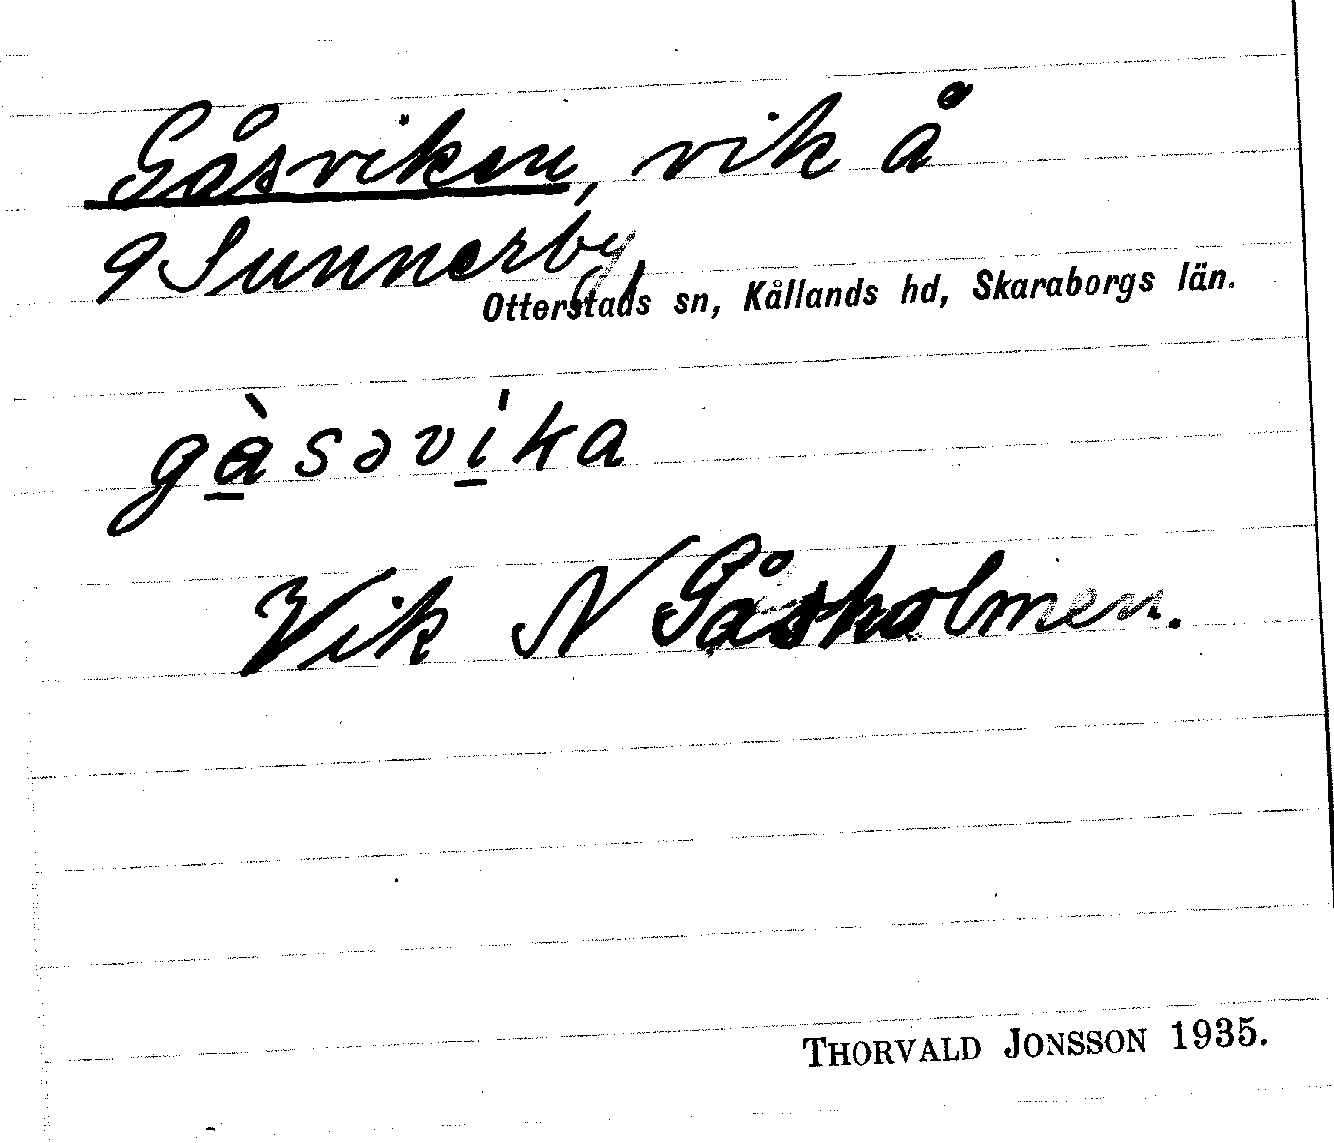 Gåsviken, vik å
9 Sunnerby,
Otterstads sn, Kållands hd, Skaraborgs län.
gàsəvi̱ka
Vik N Gåsholmen.
THORVALD JONSSON 1935.